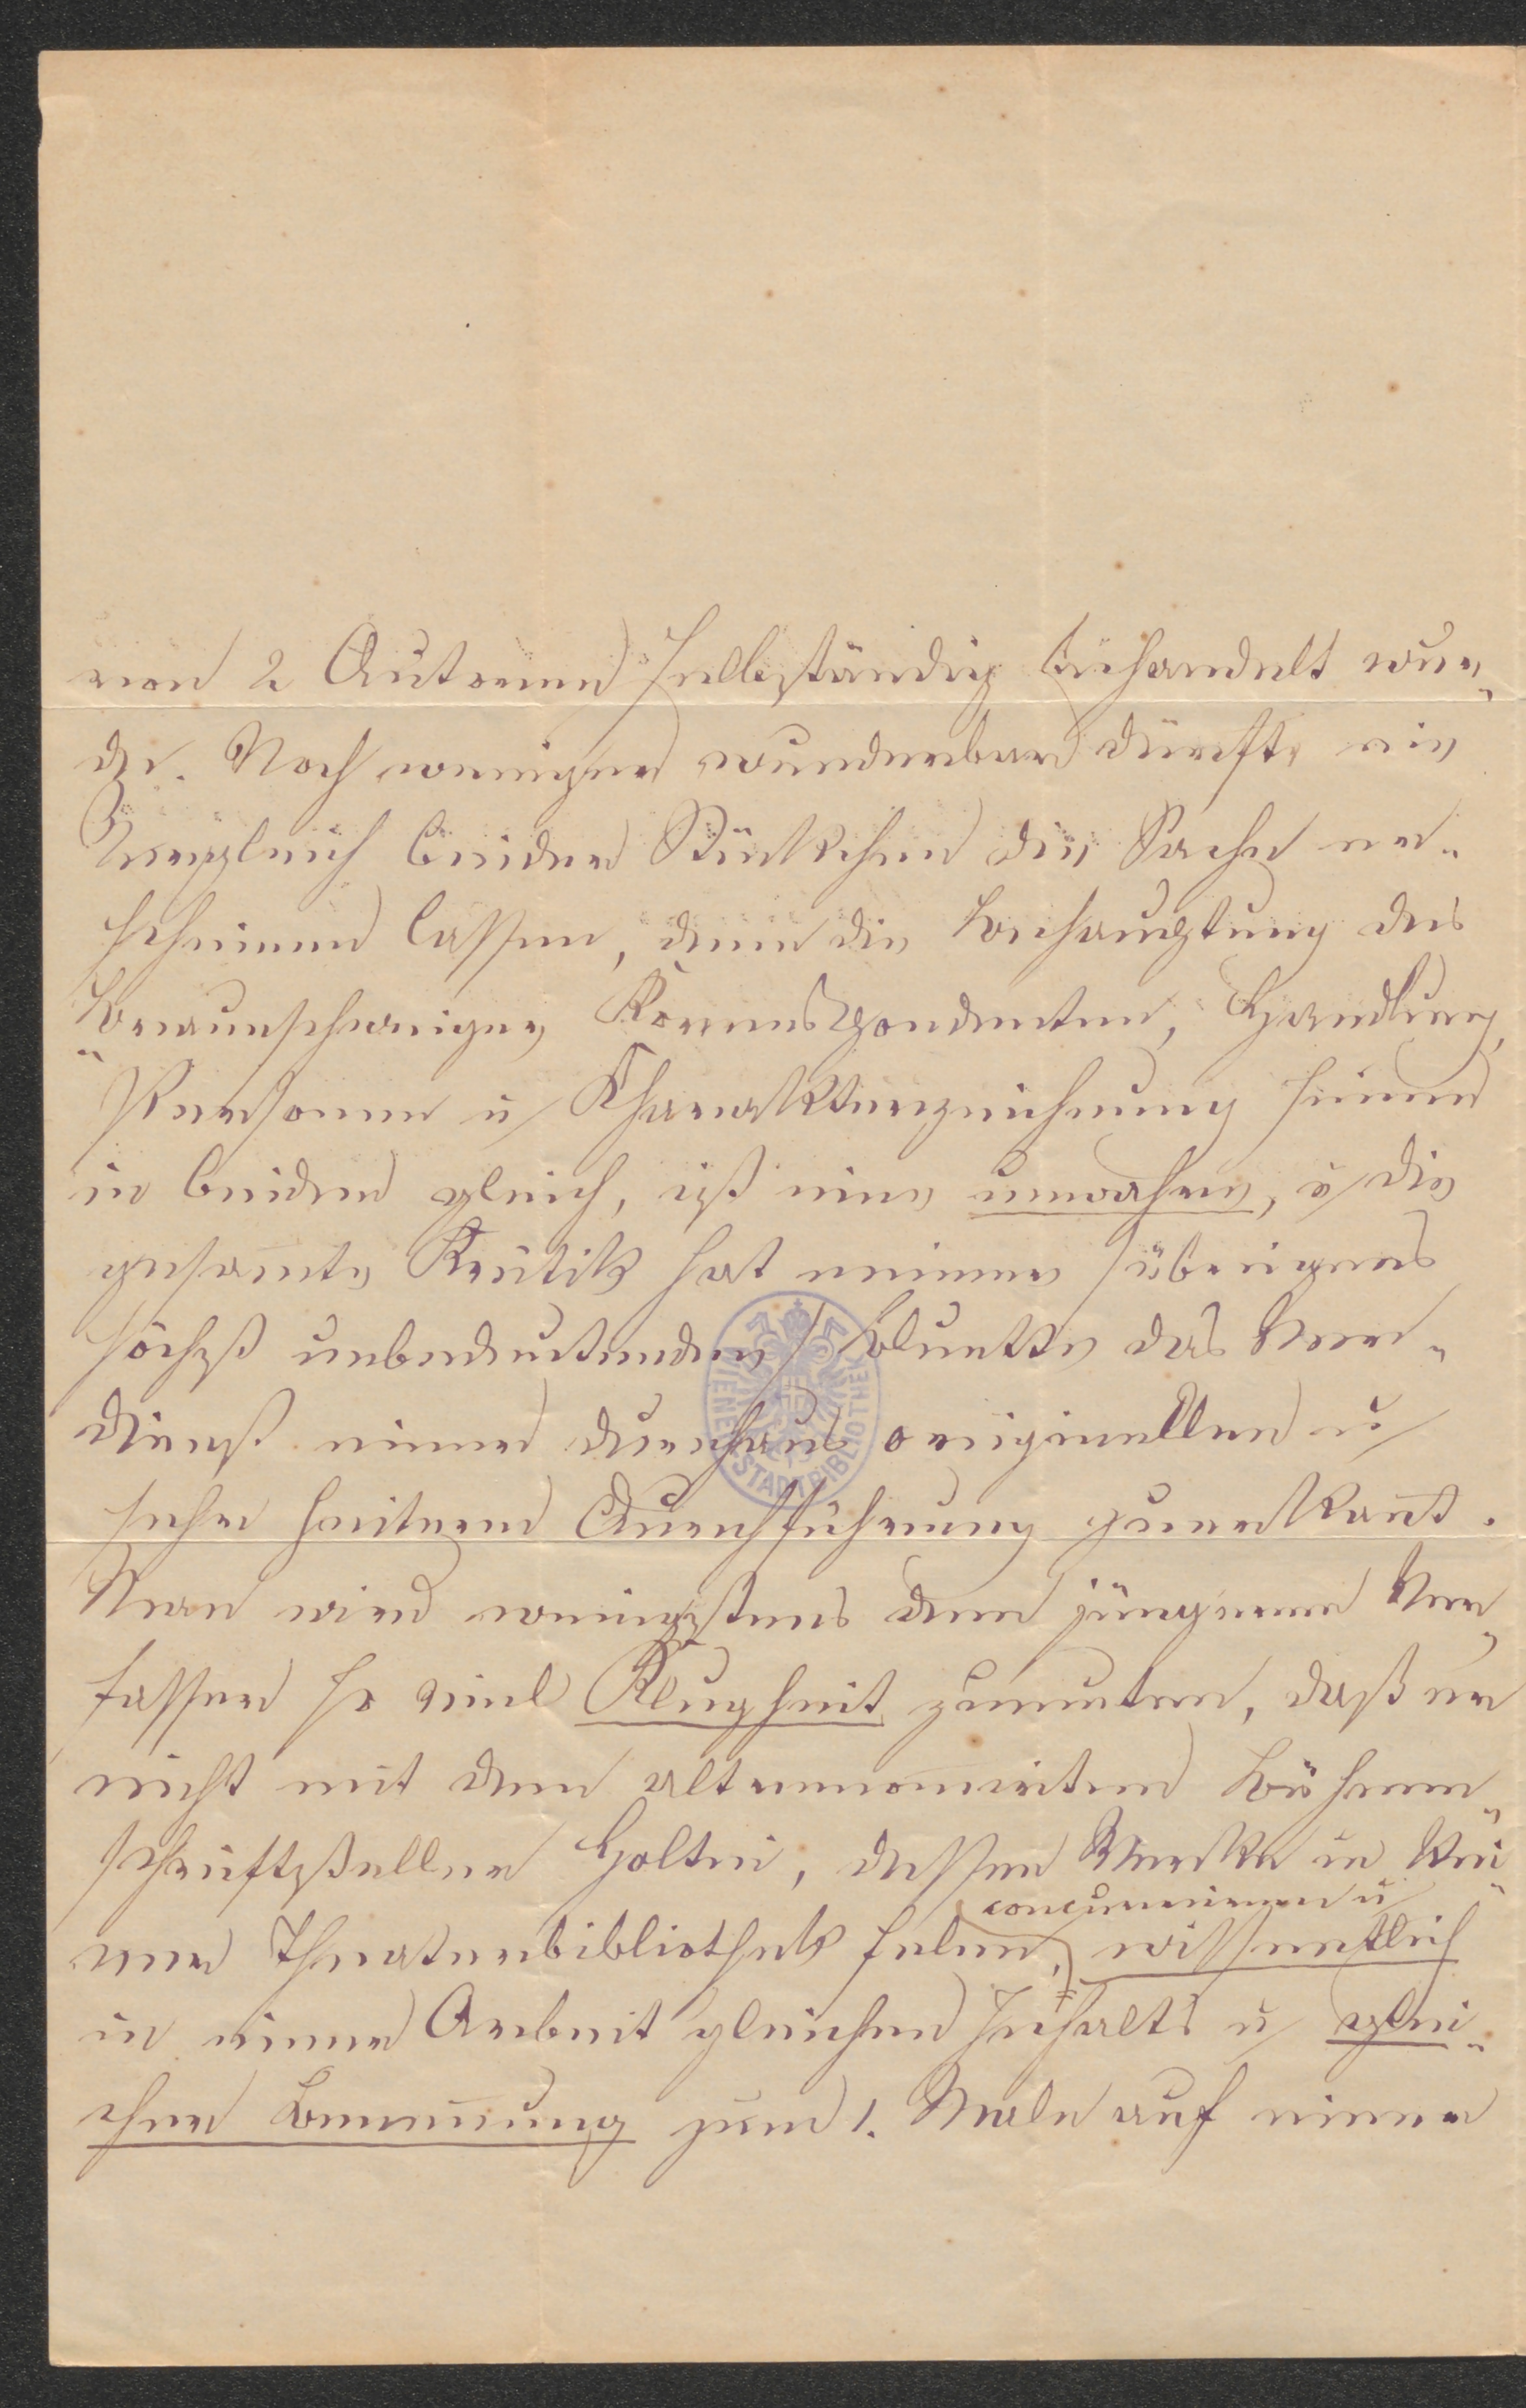 von 2 Autoren selbständig behandelt wur„
de. Noch weniger wunderbar dürfte ein
Vergleich beider Stückchen die Sache er„
scheinen lassen, denn die Behauptung des
Braunschweiger Korrespondenten, Handlung,
„Personen u Charakterzeichnung seien
in beiden gleich, ist eine unwahre, u die
gesamte Kritik hat meiner /übrigens
höchst unbedeutenden/ Bluette das Ver„
dienst einer durchaus originellen u
sehr heiteren Durchführung zuerkant.
Man wird wenigstens dem jüngeren Ver„
fasser so viel Klugheit zumuten, daß er
nicht mit dem altrenomirten Bühnen„
schriftsteller Holtei, dessen Werke in kei„
concurrieren u
ner Theaterbibliothek felen, wissentlich
in einer Arbeit gleichen Inhalts u glei„
cher Benennung zum 1. Male auf einer
WIENER STADTBIBLIOTHEK